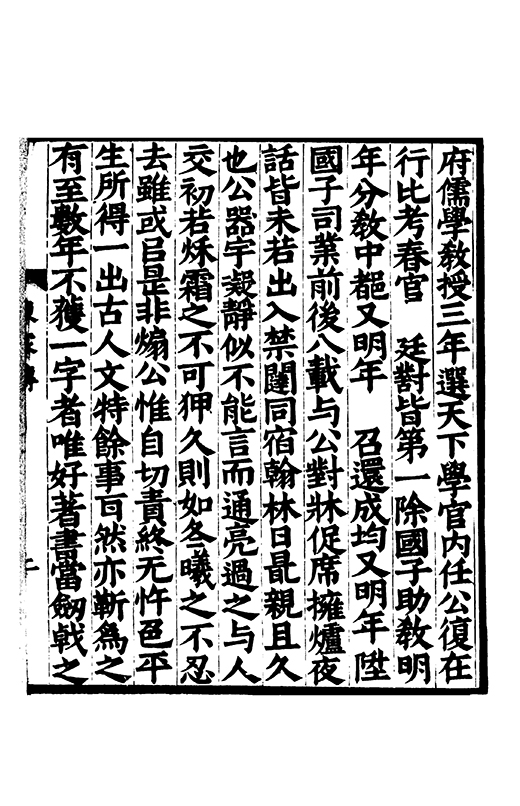 府儒學教授三年選天下學官內任公復在
行比考春官　廷對皆第一除國子助教明
年分教中都又明年　召還成均又明年陞
國子司業前後八載与公對牀促席擁爐夜
話皆未若出入禁闥同宿翰林日最親且久
也公器宇凝靜似不能言而通亮過之与人
交初若烁霜之不可狎久則如冬曦之不忍
去雖或吕是非煽公惟自切責終无忤色平
生所得一出古人文特餘事耳然亦靳為之
有至數年不獲一字者唯好著書當劒戟之